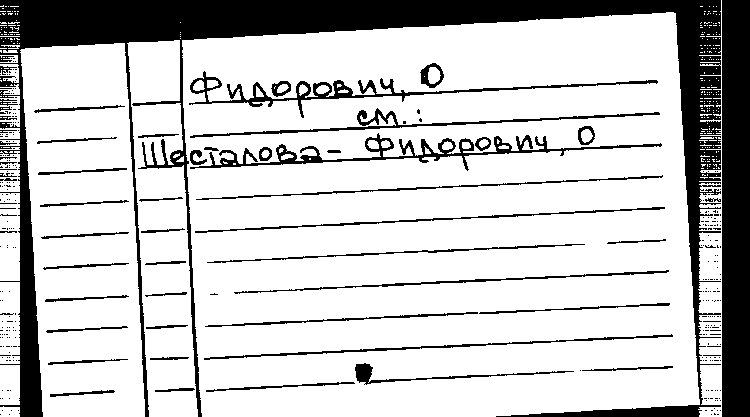 Фидорович, О
см.:
Шесталова - Фидорович, О